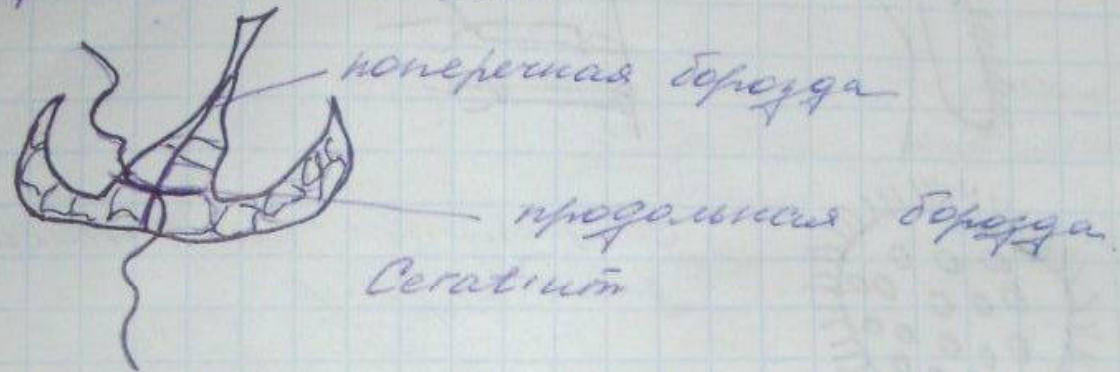 поперечная борозда
продольная борозда
Ceratium